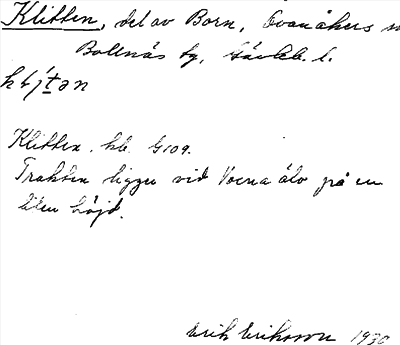 Klitten, del av Born, Ovanåkers
Bollnäs tg, Gävleb. l.
Klitten. hb. G109.
Trakten ligger vid Voxna älv på en
liten höjd.
Erik Eriksson 1930